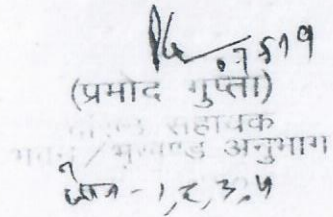 (प्रमोद गुप्ता)
सहायक
भवन / भूखण्ड अनुभाग
जोन - 1, 2, 3, 4